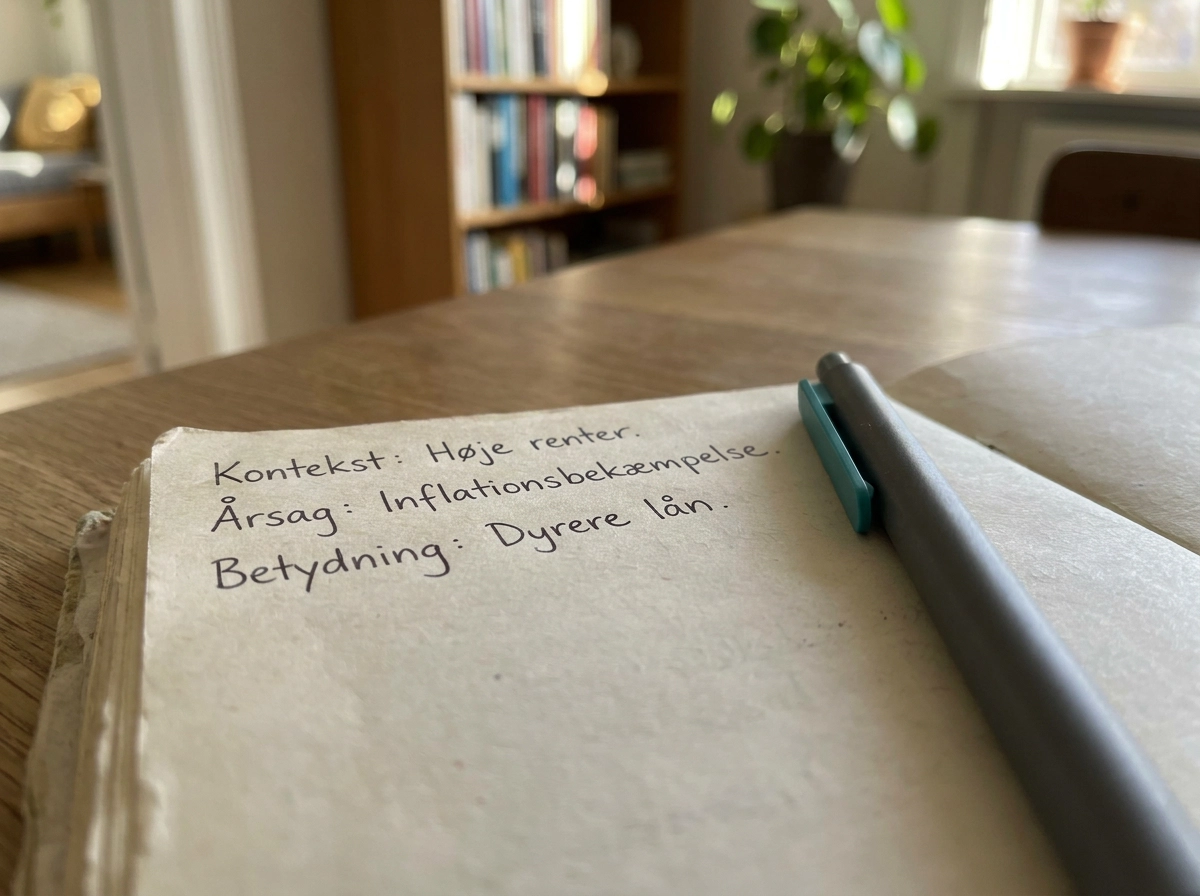 Kontekst: Høje renter.
Årsag: Inflationsbekæmpelse.
Betydning: Dyrere lån.